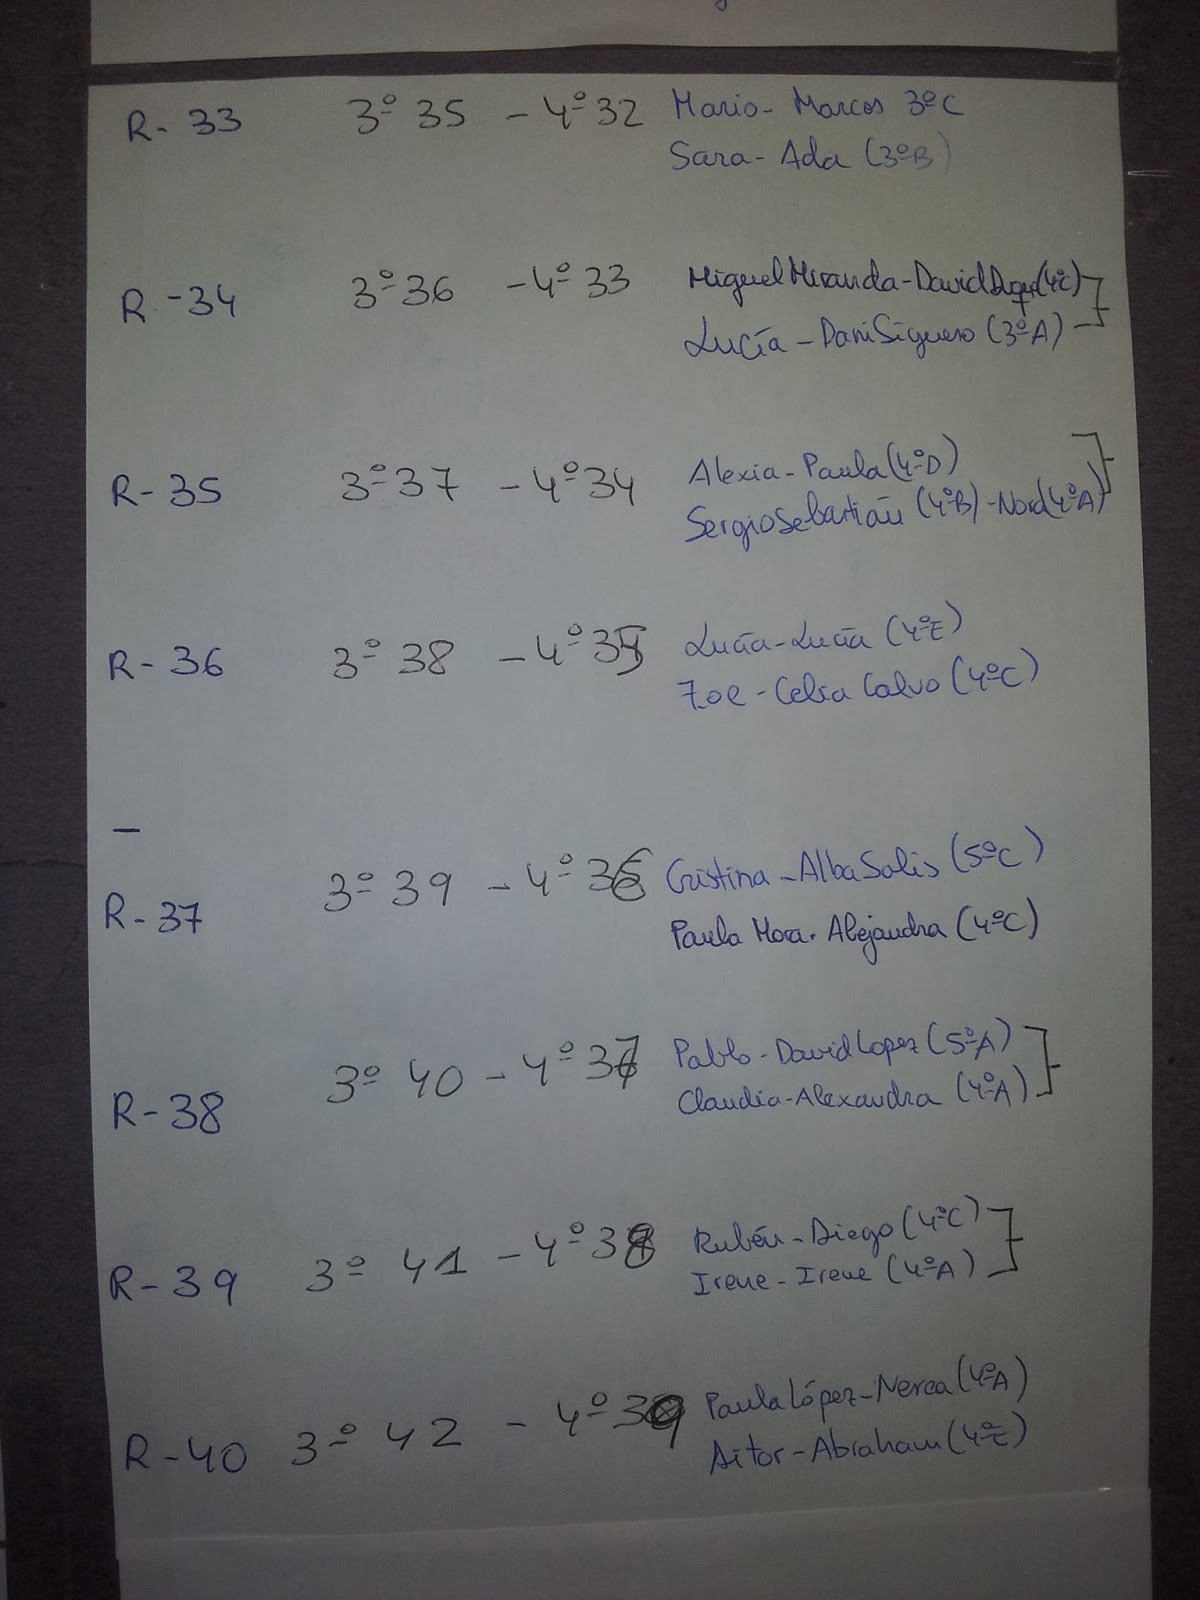 R- 33 3º 35 - 4º 32 Mario- Marcos 3ºC
Sara- Ada (3ºB)
R -34 3º 36 - 4º 33 Miguel Miranda-David Duque(4ºC)
Lucía - Dani Siguero (3ºA)
R- 35 3º 37 - 4º 34 Alexia- Paula (4ºD)
Sergio Sebastián (4ºB) - (4ºA)
R- 36 3º 38 - 4º 35 Lucía-Lucía (4ºE)
Zoe - Celia Calvo (4ºC)
R- 37 3º 39 - 4º 36 Cristina - Alba Solis (5ºC)
Paula Mora. Alejandra (4ºC)
R- 38 3º 40 - 4º 37 Pablo-David Lopez (5ºA)
Claudia-Alexandra (4ºA)
R- 39 3º 41 - 4º 38 Rubén - Diego (4ºC)
Irene - Irene (4ºA)
R -40 3º 42 - 4º 39 Paula López-Nerea (4ºA)
Aitor-Abraham (4ºE)